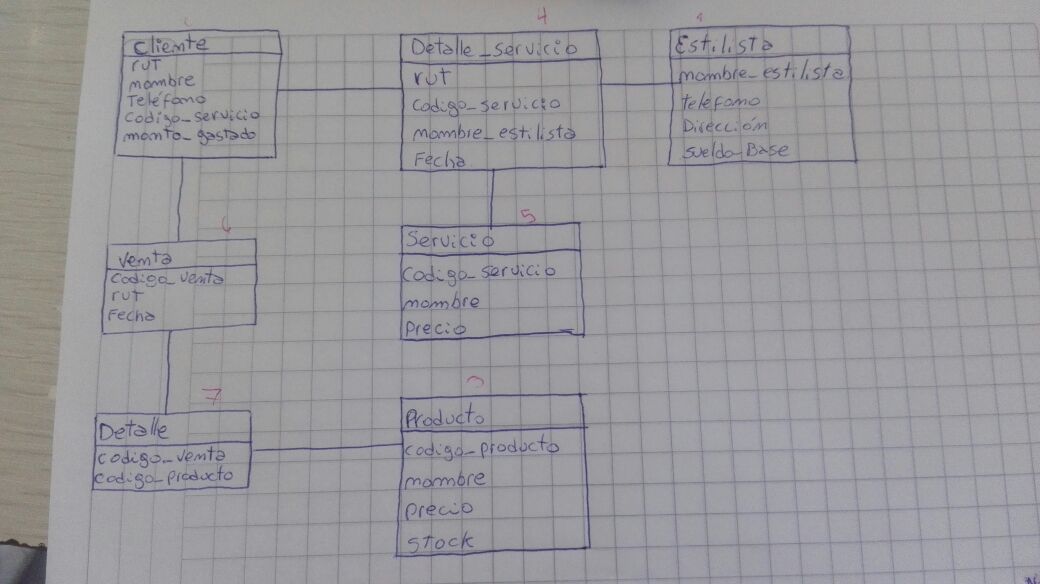 Cliente
rut
nombre
Teléfono
Codigo_servicio
monto_gastado
4
Detalle_servicio
rut
Codigo_servicio
nombre_estilista
Fecha
1
Estilista
nombre_estilista
teléfono
Dirección
sueldo_Base
6
Venta
Codigo_venta
rut
Fecha
5
Servicio
Codigo_servicio
nombre
Precio
7
Detalle
codigo_venta
codigo_producto
Producto
codigo_producto
nombre
precio
stock